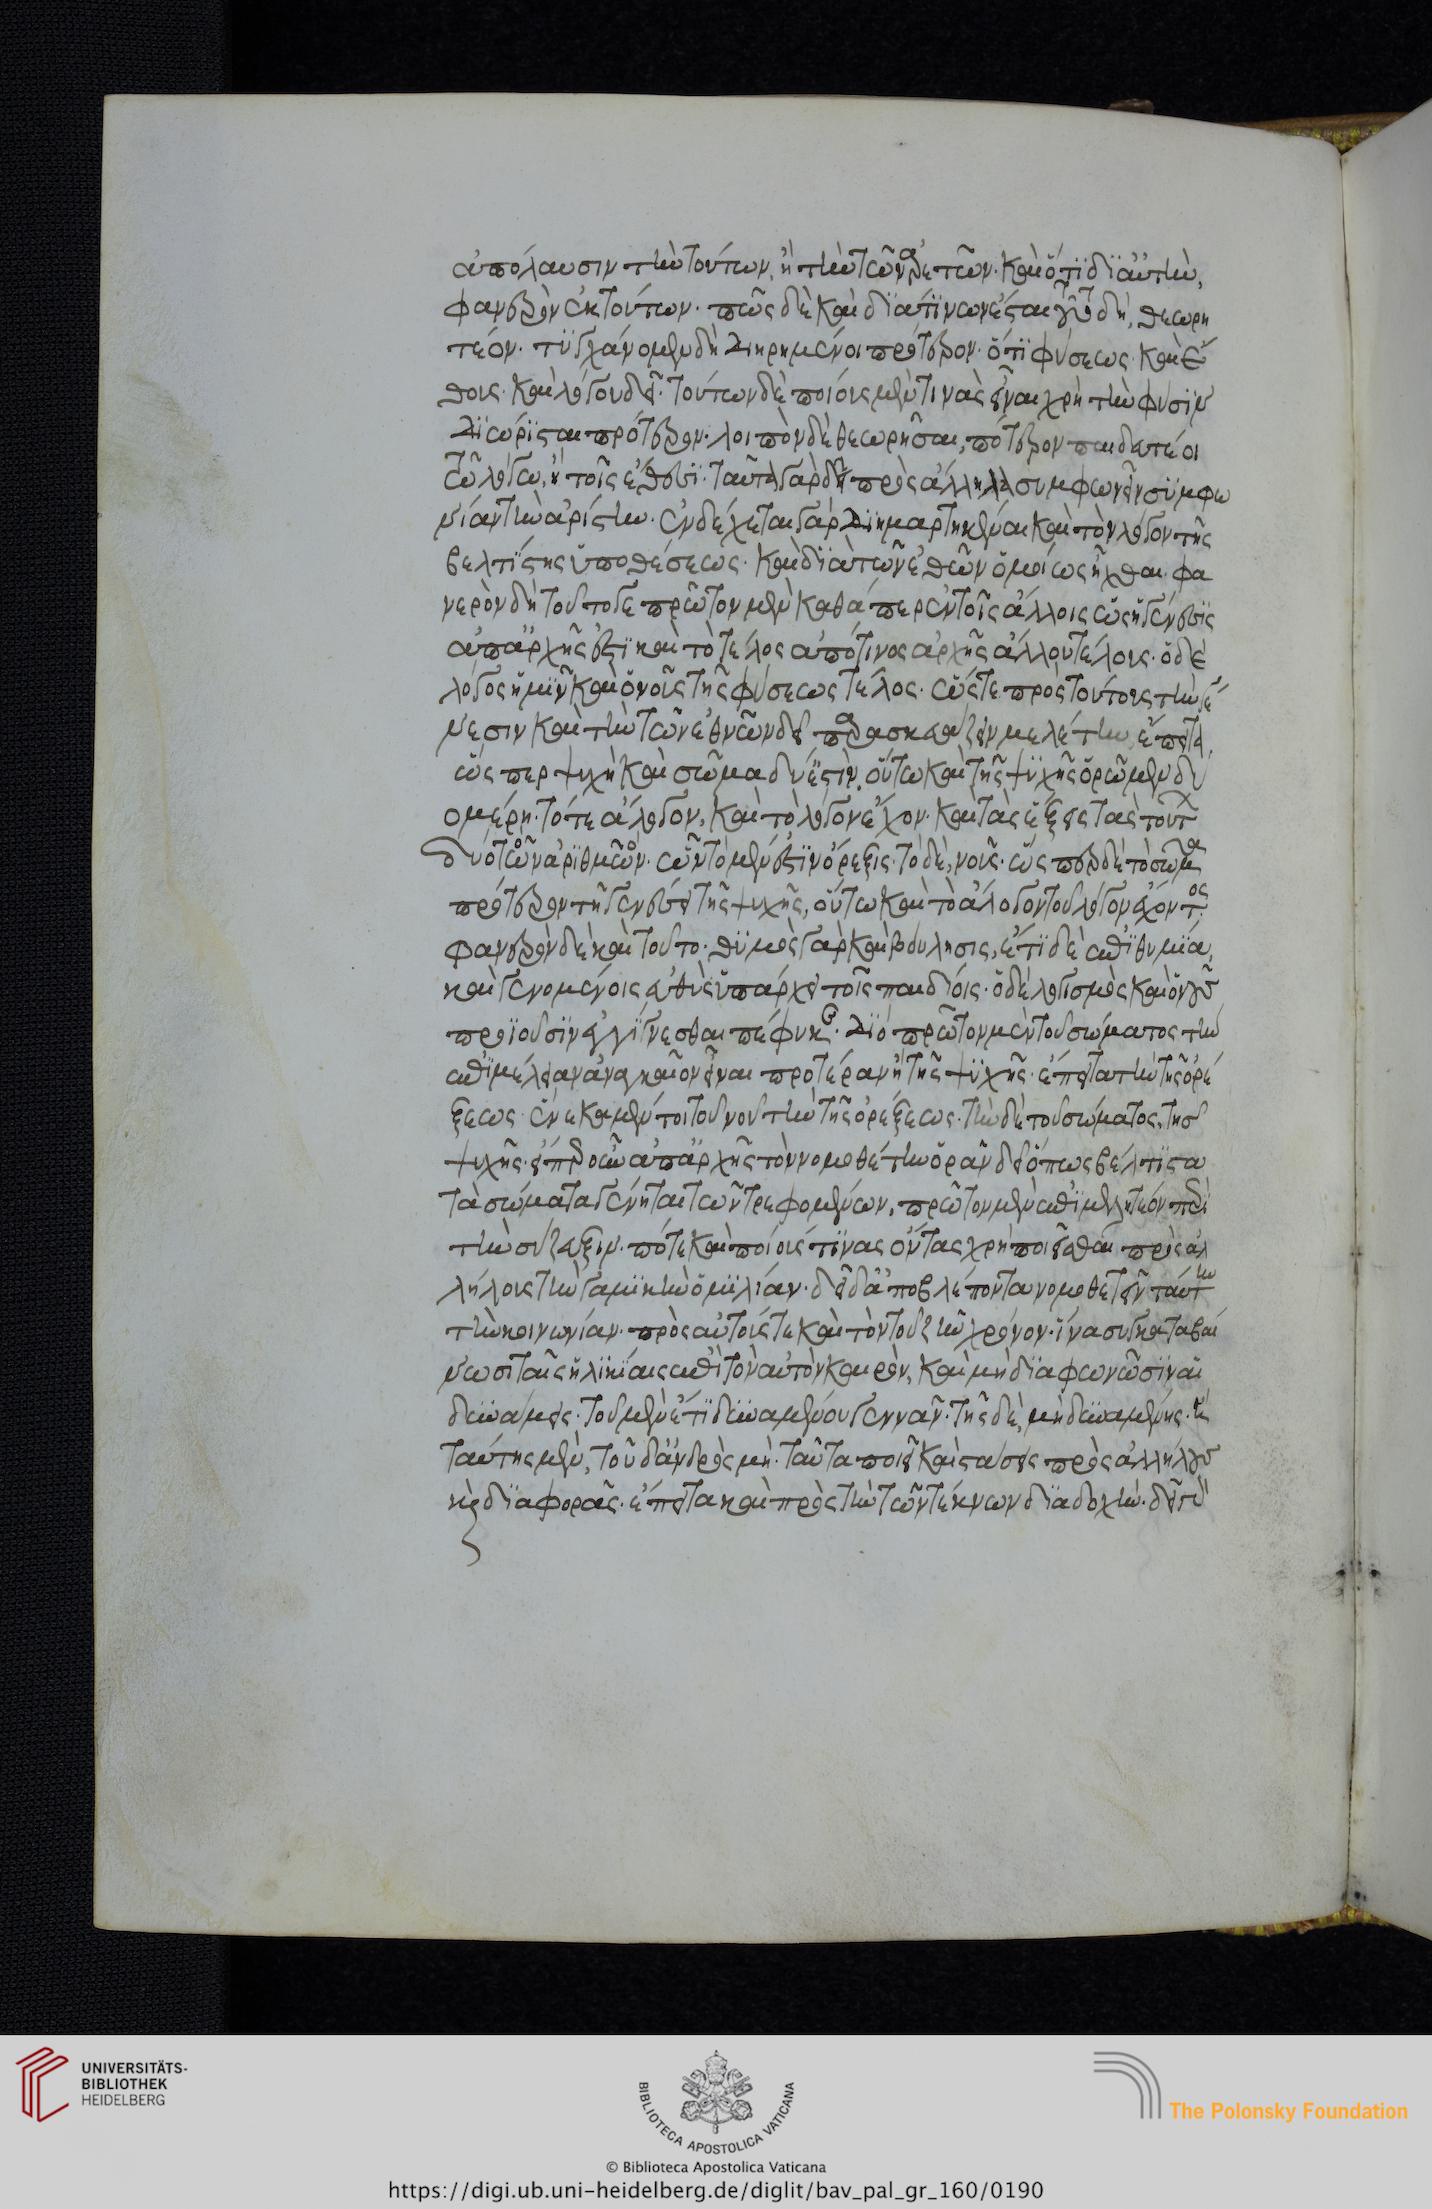 ἀπόλαυσιν τὴν τούτων, ἢ τὴν τῶν ἀρετῶν· καὶ ὅτι δι' αὐτὴν,
φανερὸν ἐκ τούτων· πῶς δὲ καὶ διὰ τίνων ἔσται τοῦτο δὴ, θεωρη
τέον· τυγχάνομεν δὴ διῃρημένοι πρότερον· ὅτι φύσεως· καὶ ἔ
θους· καὶ λόγου δεῖ· τούτων δὲ ποίους μέν τινας εἶναι χρὴ τὴν φύσιν
διώρισται πρότερον· λοιπὸν δὲ θεωρῆσαι, πότερον παιδευτέοι
τῷ λόγῳ, ἢ τοῖς ἔθεσι· ταῦτα γὰρ δεῖ πρὸς ἄλληλα συμφωνεῖν συμφω
νίαν τὴν ἀρίστην· ἐνδέχεται γὰρ διημαρτηκέναι καὶ τὸν λόγον τῆς
βελτίστης ὑποθέσεως· καὶ διὰ τῶν ἐθῶν ὁμοίως ἦχθαι· φα
νερὸν δὴ τοῦτό γε πρῶτον μὲν καθάπερ ἐν τοῖς ἄλλοις ὡς ἡ γένεσις
ἀπ' ἀρχῆς ἐστὶ καὶ τὸ τέλος ἀπό τινος ἀρχῆς ἄλλου τέλους· ὁ δὲ
λόγος ἡμῖν καὶ ὁ νοῦς τῆς φύσεως τέλος· ὥστε πρὸς τούτους τὴν γέ
νεσιν καὶ τὴν τῶν ἐθνῶν δεῖ παρασκευάζειν μελέτην, ἔπειτα
ὥσπερ ψυχὴ καὶ σῶμα δύ' ἐστὶν, οὕτω καὶ τῆς ψυχῆς ὁρῶμεν δύ
ο μέρη· τό τε ἄλογον, καὶ τὸ λόγον ἔχον· καὶ τὰς ἕξεις τὰς τούτων
δύο τῶν ἀριθμῶν· ὧν τὸ μέν ἐστιν ὄρεξις· τὸ δὲ, νοῦς· ὥσπερ δὲ τὸ σῶμα
πρότερον τῇ γενέσει τῆς ψυχῆς, οὕτω καὶ τὸ ἄλογον τοῦ λόγον ἔχοντος·
φανερὸν δὲ καὶ τοῦτο· θυμὸς γὰρ καὶ βούλησις, ἔτι δὲ ἐπιθυμία,
καὶ γενομένοις εὐθὺς ὑπάρχει τοῖς παιδίοις· ὁ δὲ λογισμὸς καὶ ὁ νοῦς
προϊοῦσιν ἐγγίνεσθαι πέφυκεν· διὸ πρῶτον μὲν τοῦ σώματος τὴν
ἐπιμέλειαν ἀναγκαῖον εἶναι προτέραν ἢ τῆς ψυχῆς· ἔπειτα τὴν τῆς ὀρέ
ξεως· ἕνεκα μέντοι τοῦ νοῦ τὴν τῆς ὀρέξεως· τὴν δὲ τοῦ σώματος, τῆς
ψυχῆς· εἴπερ οὖν ἀπ' ἀρχῆς τὸν νομοθέτην ὁρᾶν δεῖ ὅπως βέλτιστα
τὰ σώματα γένηται τῶν τρεφομένων, πρῶτον μὲν ἐπιμελητέον περὶ
τὴν σύζευξιν· πότε καὶ ποίους τινὰς ὄντας χρὴ ποιεῖσθαι πρὸς ἀλ
λήλους τὴν γαμικὴν ὁμιλίαν· δεῖ δ' ἀποβλέποντα νομοθετεῖν ταύτην
τὴν κοινωνίαν· πρὸς αὐτούς τε καὶ τὸν τοῦ ζῆν χρόνον· ἵνα συγκαταβαί
νωσι ταῖς ἡλικίαις ἐπὶ τὸν αὐτὸν καιρὸν, καὶ μὴ διαφωνῶσιν αἱ
δυνάμεις· τοῦ μὲν ἔτι δυναμένου γεννᾶν· τῆς δὲ, μὴ δυναμένης· ἢ
ταύτης μὲν, τοῦ δ' ἀνδρὸς μή· ταῦτα ποιεῖ καὶ στάσεις πρὸς ἀλλήλους
καὶ διαφοράς· ἔπειτα καὶ πρὸς τὴν τῶν τέκνων διαδοχήν· δεῖ γὰρ
UNIVERSITÄTS-
BIBLIOTHEK
HEIDELBERG
BIBLIOTECA APOSTOLICA VATICANA
© Biblioteca Apostolica Vaticana
The Polonsky Foundation
https://digi.ub.uni-heidelberg.de/diglit/bav_pal_gr_160/0190